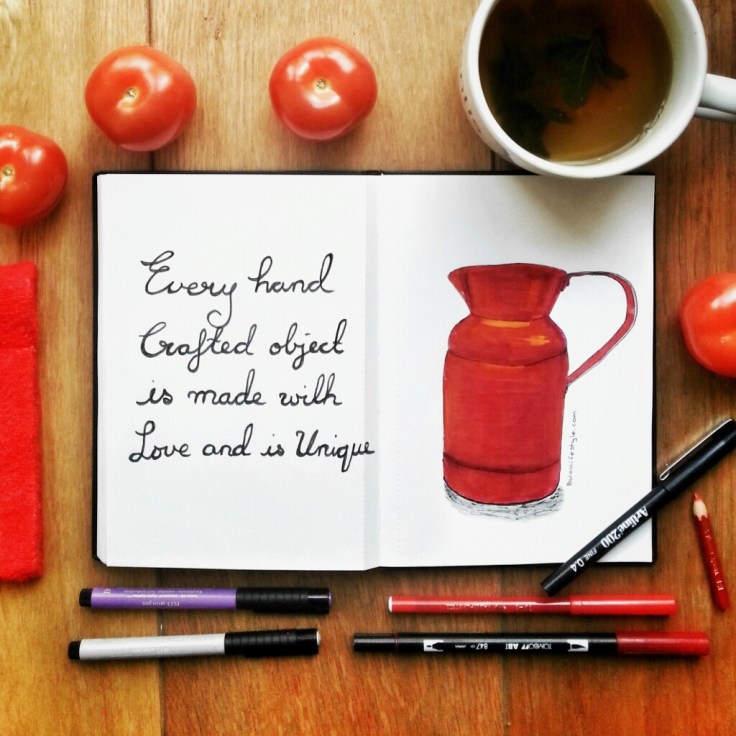 Every hand
Crafted object
is made with
Love and is Unique
Artline 200 FINE 0.4
TOMBOW ABT
847